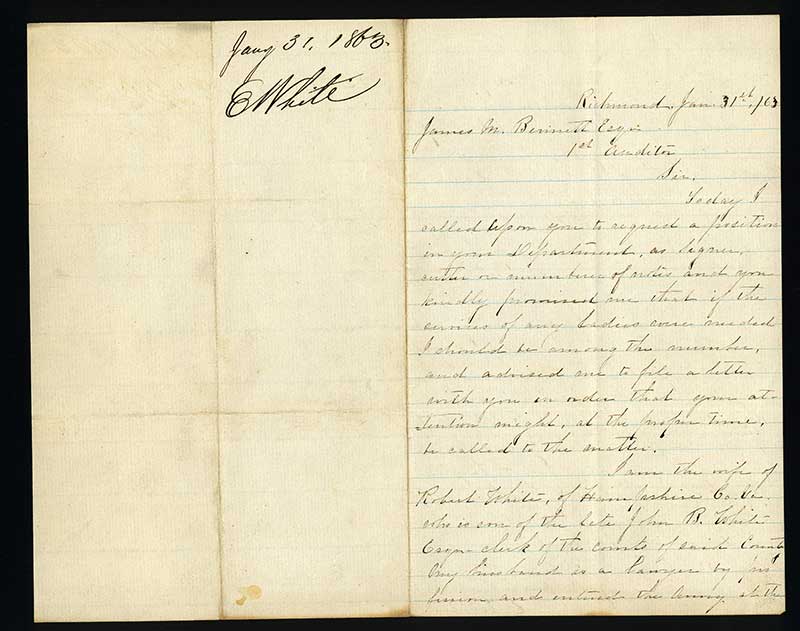 Jany 31, 1863.
E White
Richmond, Jan. 31st, /63
James M. Bennett Esqr.
1st Auditor
Sir,
Today I
called upon you to request a position
in your Department, as signer,
cutter or number of notes and you
kindly promised me that if the
services of any Ladies were needed
I should be among the number,
and advised me to file a letter
with you in order that your at-
tention might, at the proper time,
be called to the matter.
I am the wife of
Robert White, of Hampshire Co. Va.
who is son of the late John B. White
Esqr - clerk of the courts of said County
My husband is a lawyer by pro
fession, and entered the Army at the